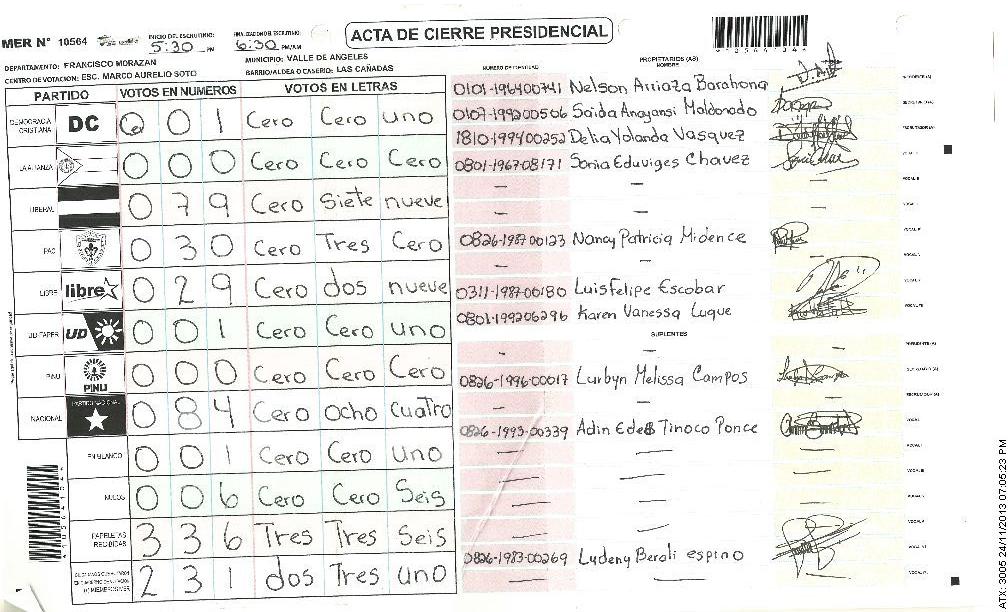 MER N° 10564
INICIO DEL ESCRUTINIO: 5:30 PM
FINALIZACION DEL ESCRUTINIO: 6:30 PM/AM
ACTA DE CIERRE PRESIDENCIAL
DEPARTAMENTO: FRANCISCO MORAZAN
MUNICIPIO: VALLE DE ANGELES
CENTRO DE VOTACION: ESC. MARCO AURELIO SOTO
BARRIO/ALDEA O CASERIO: LAS CAÑADAS
PARTIDO VOTOS EN NUMEROS VOTOS EN LETRAS
DEMOCRACIA CRISTIANA DC 0 0 1 Cero Cero uno
LA ALIANZA 0 0 0 Cero Cero Cero
LIBERAL 0 7 9 Cero Siete nueve
PAC 0 3 0 Cero Tres Cero
LIBRE libre 0 2 9 Cero dos nueve
UD-FAPER UD 0 0 1 Cero Cero uno
PINU PINU 0 0 0 Cero Cero Cero
NACIONAL PARTIDO NACIONAL 0 8 4 Cero ocho cuatro
EN BLANCO 0 0 1 Cero Cero uno
NULOS 0 0 6 Cero Cero Seis
PAPELETAS RECIBIDAS 3 3 6 Tres Tres Seis
2 3 1 dos Tres uno
NUMERO DE IDENTIDAD
PROPIETARIOS (AS)
NOMBRE
0101-196400741 Nelson Arriaza Barahona
0107-199200506 Saida Anayansi Maldonado
1810-199400252 Delia Yolanda Vasquez
0801-1967-08171 Sonia Eduviges Chavez
0826-1987-00123 Nancy Patricia Midence
0311-1987-00180 Luis Felipe Escobar
0801-199206296 Karen Vanessa Luque
SUPLENTES
0826-1996-00017 Lurbyn Melissa Campos
0826-1993-00339 Adin Tinoco Ponce
0826-1983-00269 Ludeny espino
ATX: 3005 24/11/2013 07:05:23 PM